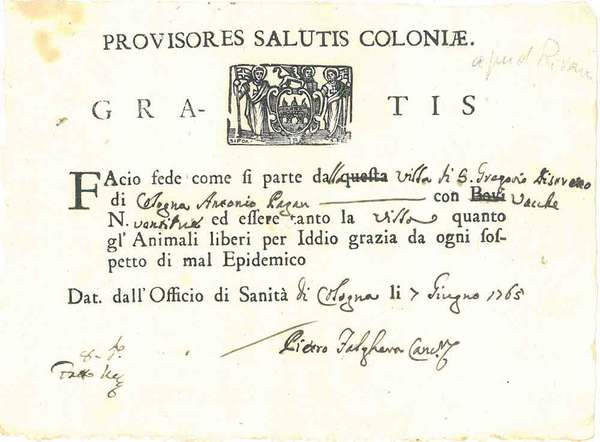 PROVISORES SALUTIS COLONIÆ.
apud Rivani
GRA- TIS
FAcio fede come si parte dalla questa villa di S. Gregorio
di Cologna Antonio Pagan con Bovi Vacche
N. ventitre ed essere tanto la Villa quanto
gl' Animali liberi per Iddio grazia da ogni sos-
petto di mal Epidemico
Dat. dall'Officio di Sanità di Cologna li 7 Giugno 1765
Pietro Falghera Canc.